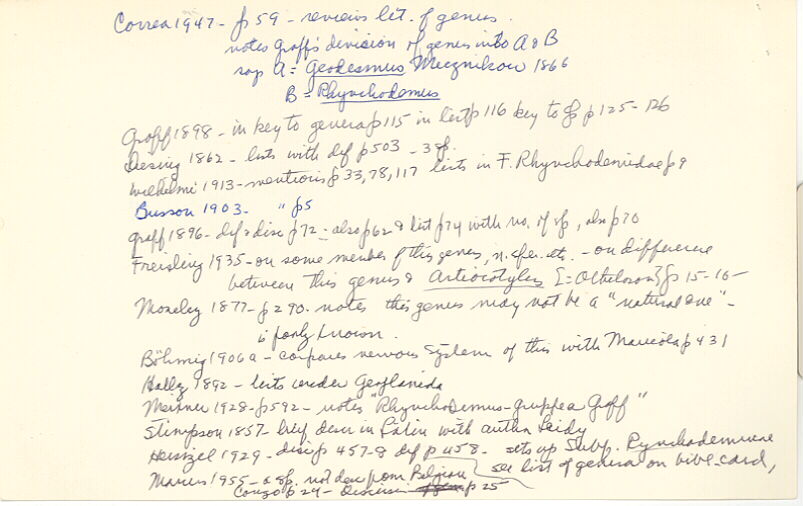 Correa 1947 - p 59 - reviews lit. of genus.
notes Graff's division of genus into A & B
says A = Geodesmus Mecznikow 1866
B = Rhynchodemus
Graff 1898 - in key to genera p 115 in list p 116 key to sp p 125 - 126
Diesing 1862 - lists with def p 503 - 3 sp.
Wilhelmi 1913 - mentions p 33, 78, 117 lists in F. Rhynchodemidae p 9
Busson 1903 - " p 5
Graff 1896 - def & disc p 72 - also p 62 & list p 74 with no. of sp, also p 70
Freisling 1935 - on some member of this genus, n. sp. etc. - on difference
between this genus & Artiocotylus [= Othelosoma] p 15 - 16 -
Moseley 1877 - p 290. notes this genus may not be a "natural one" -
is poorly known.
Böhmig 1906a - compares nervous system of this with Maricola p 431
Hallez 1892 - lists under Geoplanida
Meixner 1928 - p 592 - notes "Rhynchodemus-gruppe a Graff"
Stimpson 1857 - brief descr in Latin with author Leidy
Heinzel 1929 - disc p 457 & def p 458 - sets up Subf. Rynchodeminae
Marcus 1955 - a sp. not desc from Belgian see list of genera on bibl. card,
Congo p 24 - Discussion p 25